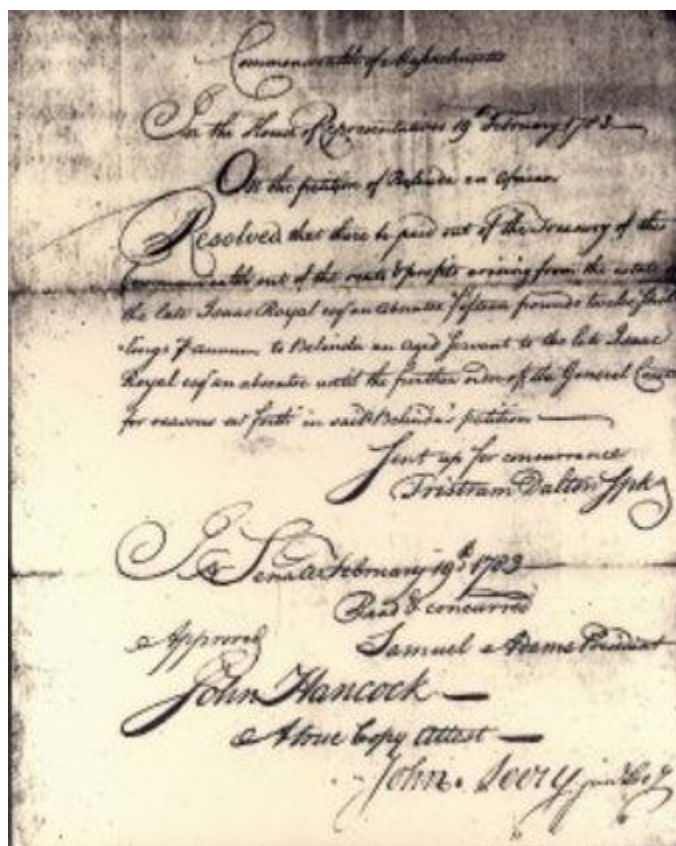 Commonwealth of Massachusetts
In the House of Representatives 19th February 1783
On the petition of Belinda an African
Resolved that there be paid out of the Treasury of this
Commonwealth out of the rents & profits arising from the estate of
the late Isaac Royal esqr an absentee fifteen pounds twelve shil
lings ⅌ annum to Belinda an aged servant to the late Isaac
Royal esqr an absentee until the further order of the General Court
for reasons set forth in said Belinda's petition
Sent up for concurrence
Tristram Dalton Spkr
In Senate February 19th 1783
Read & concurred
Approved
Samuel Adams President
John Hancock
A true Copy Attest
John Avery junr Secy